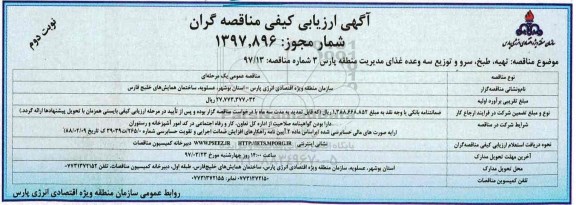 آگهی ارزیابی کیفی مناقصه گران
نوبت دوم
شماره مجوز: ۱۳۹۷,۸۹۶
سازمان منطقه ویژه اقتصادی انرژی پارس
موضوع مناقصه: تهیه، طبخ، سرو و توزیع سه وعده غذای مدیریت منطقه پارس ۳ شماره مناقصه: ۹۷/۱۳
نوع مناقصه مناقصه عمومی یک مرحله‌ای
نام‌ونشانی مناقصه‌گزار سازمان منطقه ویژه اقتصادی انرژی پارس - استان بوشهر، عسلویه، ساختمان همایش‌های خلیج فارس
مبلغ تقریبی برآورد اولیه ریال
نوع و مبلغ تضمین شرکت در فرایند ارجاع کار ضمانتنامه بانکی یا وجه نقد به مبلغ ریال (که قابل تمدید به مدت سه ماه با درخواست مناقصه گزار بوده و پس از تأیید در مرحله ارزیابی کیفی بایستی همزمان با تحویل پیشنهادها ارائه گردد)
شرایط شرکت در مناقصه دارا بودن گواهینامه صلاحیت از اداره کل تعاون کار و رفاه اجتماعی در کد امور آشپزخانه و رستوران
ارایه صورت های مالی حسابرسی شده
نحوه دریافت استعلام ارزیابی کیفی مناقصه‌گران نشانی اینترنتی WWW.PSEEZ.IR دبیرخانه کمیسیون مناقصات
آخرین مهلت تحویل مدارک ساعت ۱۴:۰۰ روز چهارشنبه مورخ ۹۷/۰۳/۲۳
محل تحویل مدارک استان بوشهر، عسلویه، سازمان منطقه ویژه اقتصادی انرژی پارس، ساختمان همایش‌های خلیج‌فارس، طبقه اول، دبیرخانه کمیسیون مناقصات
تلفن کمیسیون مناقصات
روابط عمومی سازمان منطقه ویژه اقتصادی انرژی پارس